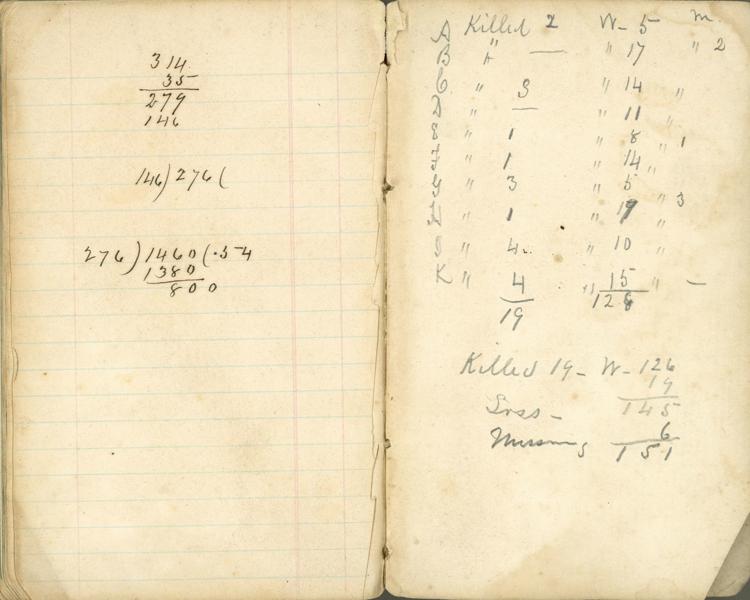 314
35
279
146
146) 276 (
276) 1460 (.54
1380
800
A Killed 2 W- 5 m
B " — " 17 " 2
C " 3 " 14 "
D " — " 11 "
E " 1 " 8 " 1
F " 1 " 14 "
G " 3 " 5 " 3
H " 1 " 19 "
I " 4 " 10 "
K " 4 " 15 " —
19 128
Killed 19- W- 126
19
Loss - 145
Missing 6
151